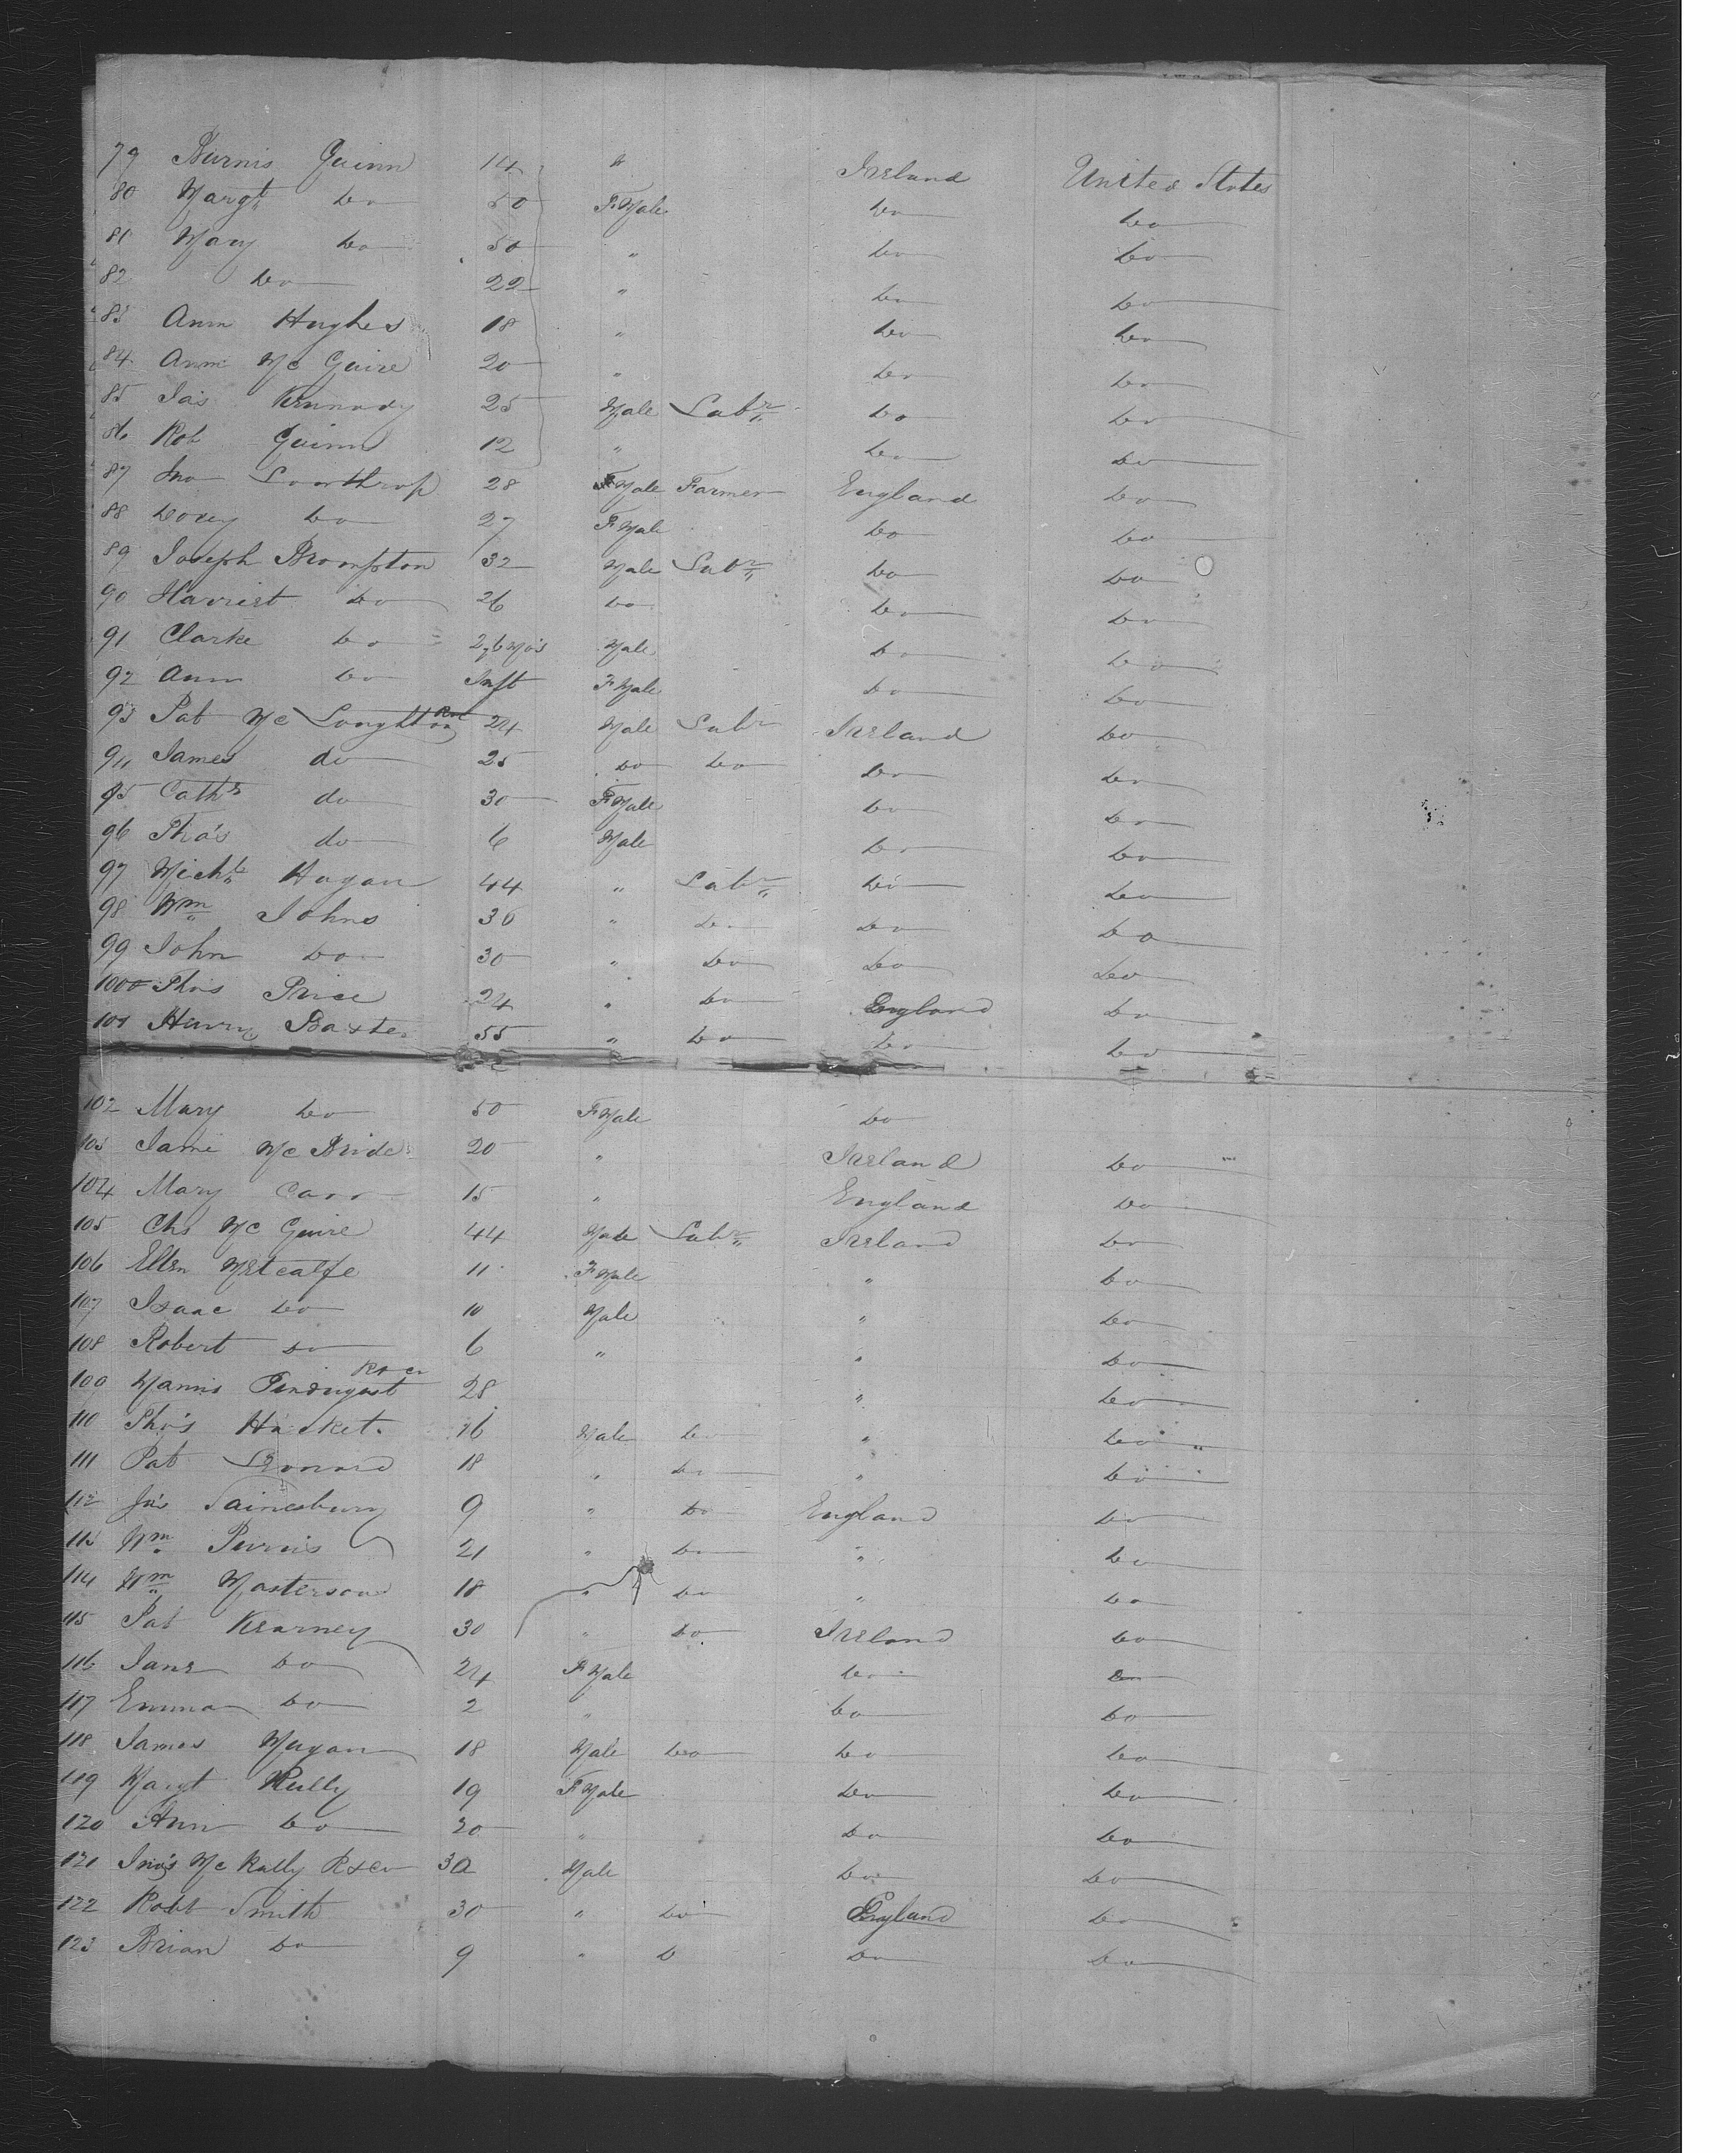 79 Burnis Quinn 14 " Ireland United States
80 Margt do 50 FMale do do
81 Mary do 50 " do do
82 do 22 " do do
83 Ann Hughes 18 " do do
84 Ann McGuire 20 " do do
85 Jas Kennady 25 Male Labr do do
86 Rob Quinn 12 " do do
87 Jno Lowthrop 28 FMale Farmer England do
88 do 27 FMale do do
89 Joseph Brompton 32 Male Labr do do
90 Harriet do 26 do do do
91 Clarke do 2,6 Mo's Male do do
92 Ann do Inft FMale do do
93 Pat Mc Loughton 24 Male Labr Ireland do
94 James do 25 do do do do
95 Cathr do 30 FMale do do
96 Tho's do 6 Male do do
97 Michl Hagan 44 " Labr do do
98 Wm Johns 30 " do do do
99 John do 30 " do do do
100 Tho's Price 24 " do England do
101 Henry Baxter 55 " do do do
102 Mary do 50 FMale do
103 Jami Mc Bride 20 " Ireland do
104 Mary Carr 15 " England do
105 Chs McGuire 44 Male Labr Ireland do
106 Ellen Metcalfe 11 FMale " do
107 Isaac do 10 Male " do
108 Robert do 6 " " do
100 Mannis 28 " do
110 Tho's Hacket 16 Male do " do
111 Pat Lennard 18 " do " do
112 Jas Sainesbury 9 " do England do
113 Wm Purvis 21 " do " do
114 Wm Masterson 18 " do " do
115 Pat Kearney 30 " do Ireland do
116 Jane do 24 FMale do do
117 Emma do 2 " do do
118 James Magan 18 Male do do do
119 Margt Reilly 19 FMale do do
120 Ann do 20 " do do
121 Mc Rally 30 Male do do
122 Robt Smith 30 " do England do
123 Brian do 9 " D do do